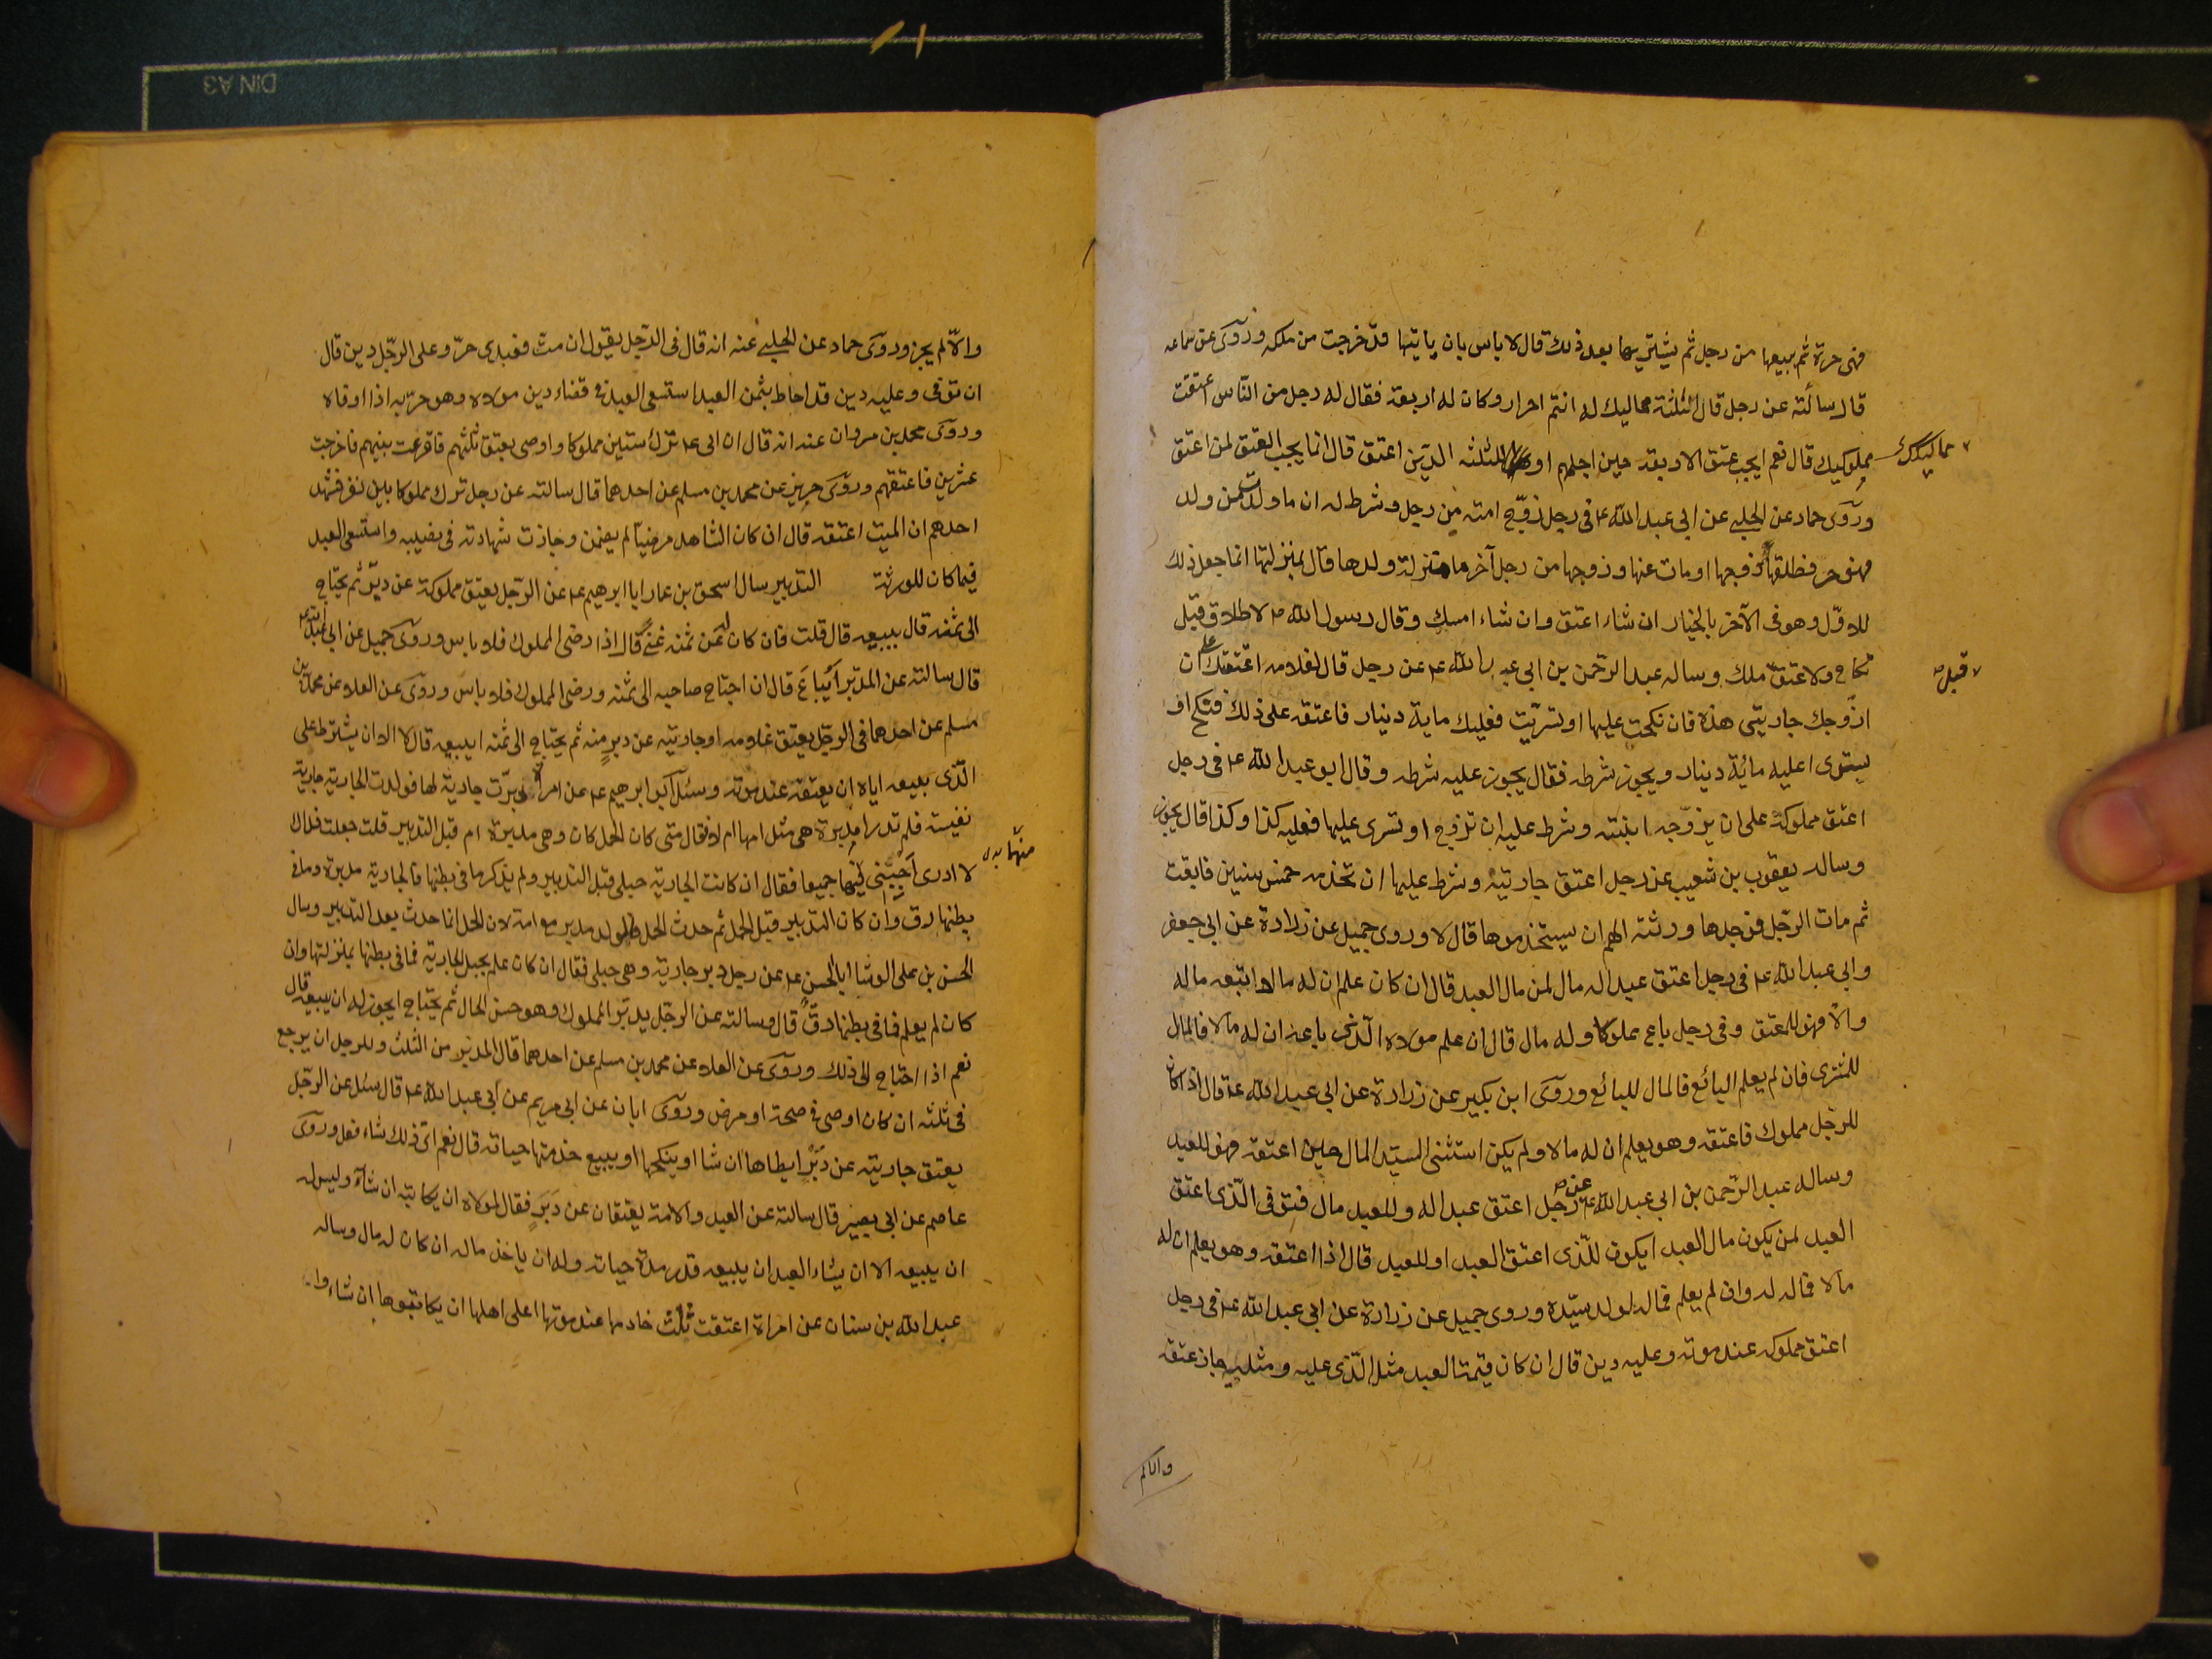 فهى حرة ثم يبيعها من رجل ثم يشتريها بعد ذلك قال لا باس بان ياتيها قد خرجت من ملكه وروى عن سماعه
قال سألته عن رجل قال لثلثة مماليك له انتم احرار وكان له اربعة فقال له رجل من الناس اعتقت
مملوكيك قال نعم ايجب عتق الاربعة حين اجملهم او للثلثه الذين اعتق قال انما يجب العتق لمن اعتق
مماليكك
وروى حماد عن الحلبى عن ابى عبد الله ع فى رجل زوج امته من رجل وشرط له ان ما ولدت من ولد
فهو حر فطلقها زوجها او مات عنها وزوجها من رجل آخر ما منزلة ولدها قال بمنزلتها انما جعل ذلك
للاول وهو فى الآخر بالخيار ان شاء اعتق وان شاء امسك وقال رسول الله ص لا طلاق قبل
نكاح ولا عتق ملك وساله عبد الرحمن بن ابى عبد الله ع عن رجل قال لغلامه اعتقتك على ان
قبل
ازوجك جاريتى هذه فان نكحت عليها او تسريت فعليك ماية دينار فاعتقه على ذلك فنكح او
يتسرى اعليه مائة دينار ويجوز شرطه فقال يجوز عليه شرطه وقال ابو عبد الله ع فى رجل
اعتق مملوكه على ان يزوجه ابنته وشرط عليه ان تزوج او تسرى عليها فعليه كذا وكذا قال يجوز
وساله يعقوب بن شعيب عن رجل اعتق جاريته وشرط عليها ان تخدمه خمس سنين فابقت
ثم مات الرجل فوجدها ورثته الهم ان يستخدموها قال لا وروى جميل عن زرارة عن ابى جعفر
وابى عبد الله ع فى رجل اعتق عبدا له مال لمن مال العبد قال ان كان علم ان له مالا تبعه ماله
والا فهو للمعتق وفى رجل باع مملوكا وله مال قال ان علم مولاه الذى باعه ان له مالا فالمال
للمشترى فان لم يعلم البائع فالمال للبائع وروى ابن بكير عن زرارة عن ابى عبد الله ع قال اذا كان
للرجل مملوك فاعتقه وهو يعلم ان له مالا ولم يكن استثنى السيد المال حين اعتقه فهو للعبد
وساله عبد الرحمن بن ابى عبد الله ع عن رجل اعتق عبدا له وللعبد مال فتوفى الذى اعتق
العبد لمن يكون مال العبد ايكون للذى اعتق العبد او للعبد قال اذا اعتقه وهو يعلم ان له
مالا فماله له وان لم يعلم فماله لولد سيده وروى جميل عن زرارة عن ابى عبد الله ع فى رجل
اعتق مملوكه عند موته وعليه دين قال ان كان قيمة العبد مثل الذى عليه ومثليه جاز عتقه
والا لم
والا لم يجز وروى حماد عن الحلبى عنه انه قال فى الرجل يقول ان مت فعبدى حر وعلى الرجل دين قال
ان توفى وعليه دين قد احاط بثمن العبد استسعى العبد فى قضاء دين مولاه وهو حر به اذا اوفاه
وروى محمد بن مروان عنه انه قال ان ابى ع ترك ستين مملوكا واوصى بعتق ثلثهم فاقرعت بينهم فاخرجت
عشرين فاعتقهم وروى حريز عن محمد بن مسلم عن احدهما قال سالته عن رجل ترك مملوكا بين نفر فشهد
احدهم ان الميت اعتقه قال ان كان الشاهد مرضيا لم يضمن وجازت شهادته فى نصيبه واستسعى العبد
فيما كان للورثة التدبير سال اسحق بن عمار ابا ابرهيم ع عن الرجل يعتق مملوكه عن دبر ثم يحتاج
الى ثمنه قال يبيعه قال قلت فان كان له عن ثمنه غنى قال اذا رضى المملوك فلا باس وروى جميل عن ابى عبد الله ع
قال سالته عن المدبر ايباع قال ان احتاج صاحبه الى ثمنه ورضى المملوك فلا باس وروى عن العلا عن محمد بن
مسلم عن احدهما فى الرجل يعتق غلامه او جاريته عن دبر منه ثم يحتاج الى ثمنه ايبيعه قال لا الا ان يشترط على
الذى يبيعه اياه ان يعتقه عند موته وسئل ابو ابرهيم ع عن امراة دبرت جارية لها فولدت الجارية جارية
نفيسة فلم تدر امدبرة هى مثل امها ام لا فقال متى كان الحمل كان وهى مدبرة ام قبل التدبير قلت جعلت فداك
لا ادرى اجبنى فيهما جميعا فقال ان كانت الجارية حبلى قبل التدبير ولم يذكر ما فى بطنها فالجارية مدبرة وما فى
بطنها رق وان كان التدبير قبل الحمل ثم حدث الحمل فالولد مدبر مع امه لان الحمل انما حدث بعد التدبير وسال
الحسن بن على الوشا ابا الحسن ع عن رجل دبر جارية وهى حبلى فقال ان كان علم بحبل الجارية فما فى بطنها بمنزلتها وان
كان لم يعلم فما فى بطنها رق قال وسالته عن الرجل يدبر المملوك وهو حسن الحال ثم يحتاج ايجوز له ان يبيعه قال
نعم اذا احتاج الى ذلك وروى عن العلا عن محمد بن مسلم عن احدهما قال المدبر من الثلث وللرجل ان يرجع
فى ثلثه ان كان اوصى فى صحة او مرض وروى ابان عن ابى مريم عن ابى عبد الله ع قال سئل عن الرجل
يعتق جاريته عن دبر ايطاها ان شا او ينكحها او يبيع خدمتها حياته قال نعم اى ذلك شاء فعل وروى
عاصم عن ابى بصير قال سالته عن العبد والامة يعتقان عن دبر فقال لمولاه ان يكاتبه ان شآء وليس له
ان يبيعه الا ان يشاء العبد ان يبيعه قدر مدة حياته وله ان ياخذ ماله ان كان له مال وساله
عبد الله بن سنان عن امراة اعتقت ثلث خادمها عند موتها اعلى اهلها ان يكاتبوها ان شاءوا